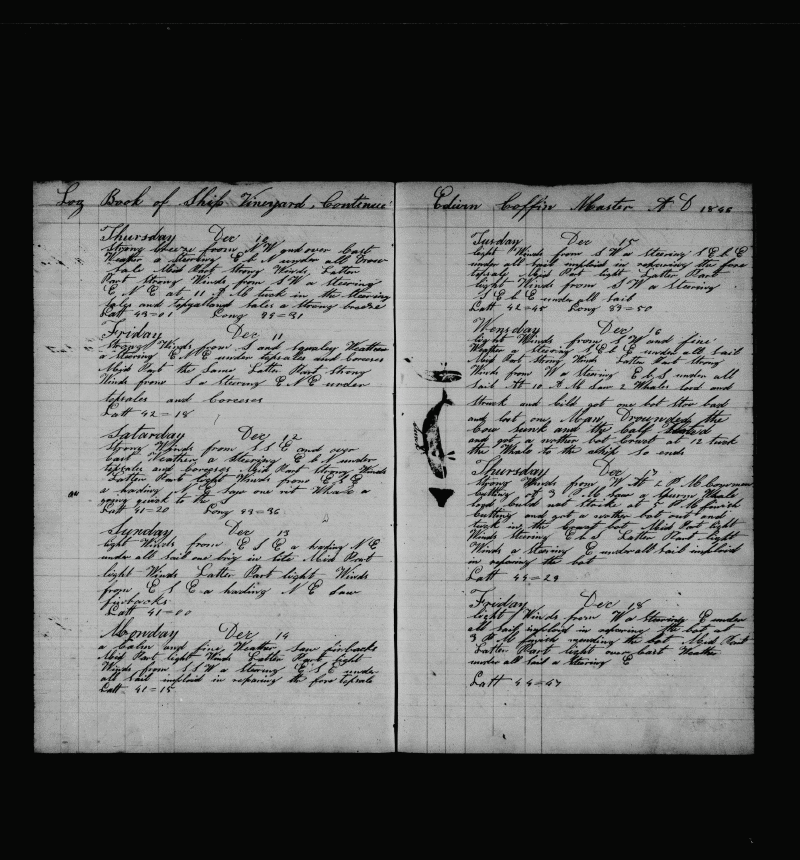 Log Book of Ship Vineyard, Continue
Thursday Dec 10
Strong breeze from N W and over Cast
Weather a Steering E b N under all Drow
Sale Mid Part Strong Winds Latter
Part Strong Winds from S W a Steering
E N E at 11 P M tuck in the Steering
Sales and topgalland sales a Strong breeze
Latt 43=01 Long
Friday Dec 11
Strong Winds from S and Squaley Weather
a Steering E N E under topsales and Corcess
Mid Part the Same Latter Part Strong
Winds from S a Steering E N E under
topsales and Corcess
Latt 42=18
Saturday Dec 12
Strong Winds from S S E and over
Cast Weather, a Steering E b S under
topsales and Corcess Mid Part Strong Winds
Latter Part light Winds from E S E
a hading N E saw one rit Whale a
going quick to the
Latt 41=20 Long
Synday Dec 13
light Winds from E S E a hading N E
under all sail one brig in Site Mid Part
light Winds Latter Part light Winds
from E S E a hading N E Saw
finbacks
Latt 41=00
Monday Dec 14
a Calm and fine Weather, Saw finbacks
Mid Part light Winds Latter Part light
Winds from S S W a Steering E S E under
all Sail imploid in repairing the fore topsale
Latt 41=15
Edwin Coffin Master A D
Tusday Dec 15
light Winds from S W a Steering S E b E
under all sail imploid in repairing the fore
topsale Mid Part light Latter Part
light Winds from S W a Steering
S E b E under all Sail
Latt 42=45 Long 83=50
Wensday Dec 16
light Winds from S W and fine
Weather a Steering S E b E under all Sail
Mid Part Strong Winds Latter Part Strong
Winds from W a Steering E b S under all
Sail At 10 A M Saw 2 Whales lord and
Struck and Cild got one bot Stov bad
and lost one Man Drounded the
Cow Sunk and the Calf
and got a nother bot Crant at 12 tuck
the Whale to the Ship So ends
Thursday Dec 17
Strong Winds from W At 2 P M
Cutting at 3 P M Saw a Spurm Whale
lord Cild and Stock at 6 P M finish
Cutting and got a nother bot out and
tuck in the Crant bot Mid Part light
Winds Steering E b S Latter Part light
Winds a Stearing E under all Sail imploid
in repairing the bot
Latt 44=29
Friday Dec 18
light Winds from W a Steering E under
all Sail imploid in repairing the bot at
3 P M finish mending the bot Mid Part
Latter Part light over Cast Weather
under all Sail a Steering E
Latt 44=47